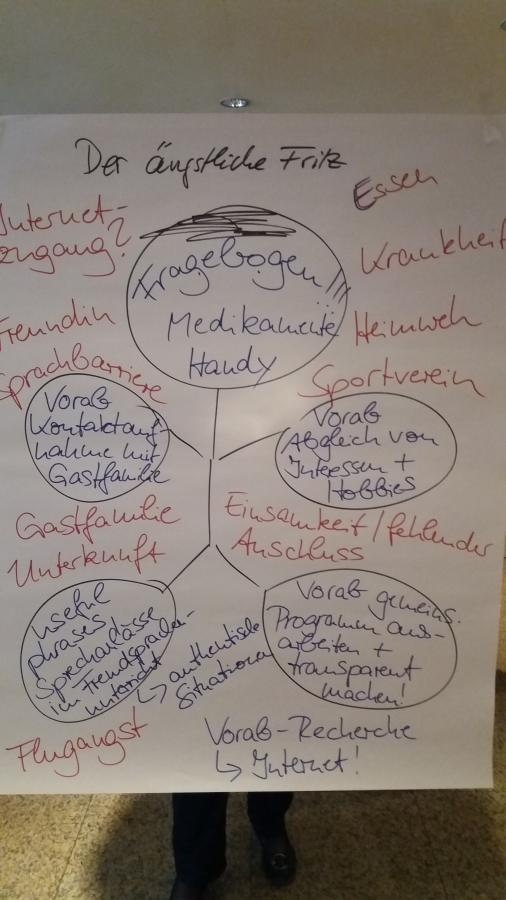 Der ängstliche Fritz
Internet-
zugang?
Essen
Krankheit
Fragebogen!!!
Medikamente
Handy
Freundin
Heimweh
Sprachbarriere
Sportverein
Vorab
Kontaktauf-
nahme mit
Gastfamilie
Vorab
Abgleich von
Interessen +
Hobbies
Gastfamilie
Unterkunft
Einsamkeit/fehlender
Anschluss
useful
phrases
Sprechanlässe
im Fremdsprachen-
unterricht
↳ authentische
Situationen
Vorab gemeins.
Programm aus-
arbeiten +
transparent
machen!
Flugangst
Vorab-Recherche
↳ Internet!